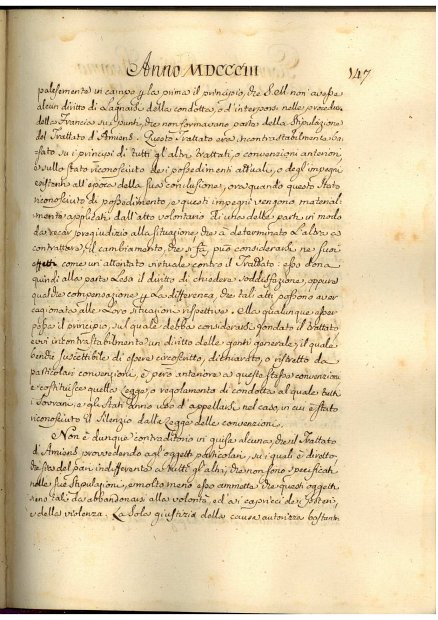 Anno MDCCCIII 147
palesemente in campo p la prima il principio, che S. M. non avesse
alcun diritto di Lagnarsi della condotta, o d'interporsi nelle procedure
della Francia su i punti, che non formavano parte della Stipulazione
del Trattato d'Amiens. Questo Trattato era incontrastabilmente ba-
sato su i principj di tutti gl'altri trattati, o convenzioni anteriori,
e sullo stato riconosciuto dei possedimenti attuali, o degl'impegni
esistenti all'epoca della sua conclusione, ora quando questo Stato
riconosciuto di possedimento, e questi impegni vengono material
mente applicati dall'atto volontario di una delle parti in modo
da recar pregiudizio alla situazione, che à determinato l'altra a
contrattare, il cambiamento, che si fà, può considerarsi ne suoi
effetti come un attentato virtuale contro il Trattato: esso dona
quindi alla parte Lesa il diritto di chiedere soddisfazione, oppure
qualche compensazione p La differenza, che tali atti possono aver
cagionata alle Loro situazioni rispettive. Ma qualunque esser
possa il principio, sul quale debba considerarsi fondato il Trattato
evvi incontrastabilmente un diritto delle genti generale, il quale
benchè suscettibile di essere circoscritto, dichiarato, o ristretto da
particolari convenzioni, è però anteriore a queste stesse convenzioni
e costituisce quella Legge, o regolamento di condotta al quale tutti
i Sovrani, e gli Stati ànno uso d'appellarsi nel caso, in cui è stato
riconosciuto il Silenzio dalla Legge delle convenzioni.
Non è dunque contraditorio in guisa alcuna, che il Trattato
d'Amiens provvedendo agl'oggetti particolari, su i quali è diretto,
che sia del pari indifferente a tutti gl'altri, che non sono specificati
nelle sue stipulazioni, e molto meno esso ammette che questi oggetti
siano tali da abbandonarsi alla volontà, ed ai capricci dei
e della violenza. La Sola giustizia della causa autorizza